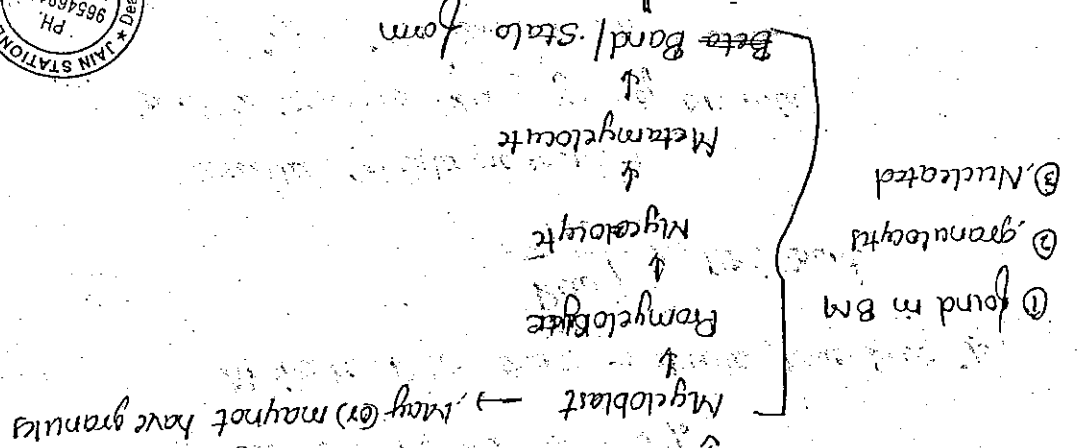 Myeloblast → May (or) maynot have granules
↓
Promyelocyte
↓
Myelocyte
↓
Metamyelocyte
↓
Beta Band/Stab form
① found in BM
② granulocytes
③ Nucleated
JAIN STATIONE
PH.